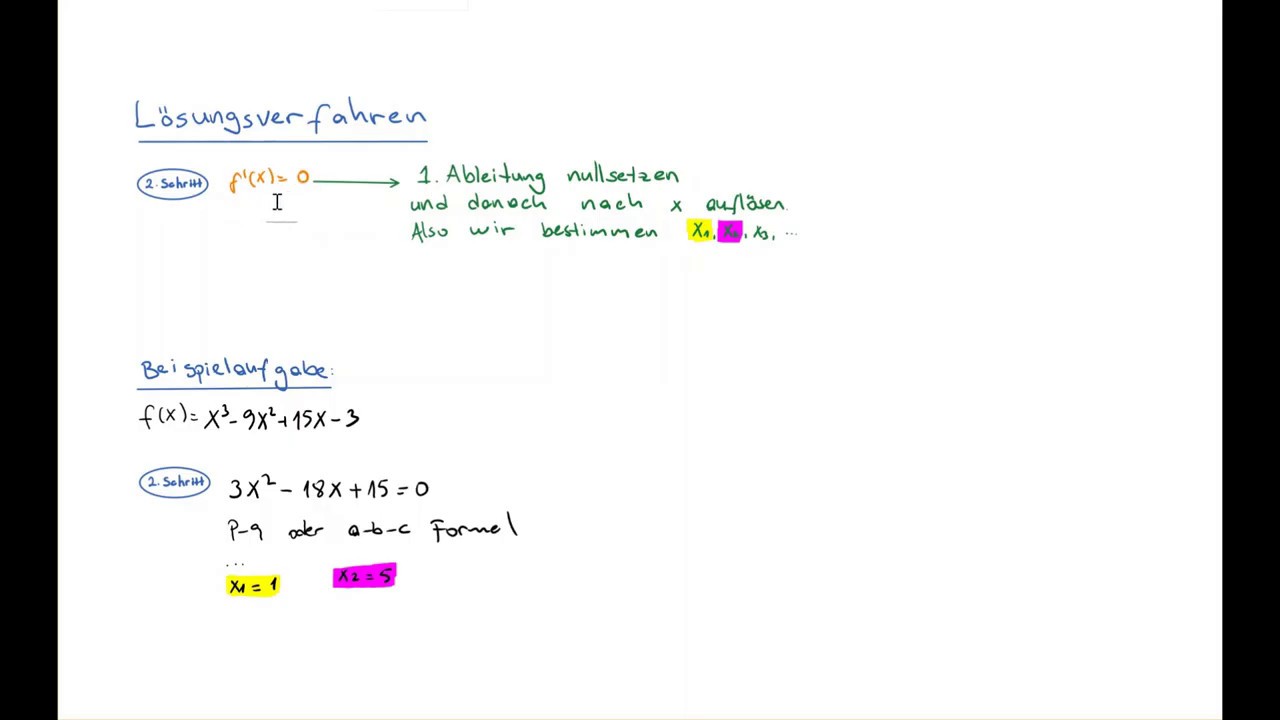 Lösungsverfahren
2. Schritt f'(x) = 0 → 1. Ableitung nullsetzen
und danach nach x auflösen.
Also wir bestimmen x1, x2, x3, ...
Beispielaufgabe:
f(x) = x³ - 9x² + 15x - 3
2. Schritt 3x² - 18x + 15 = 0
P-q oder a-b-c Formel
...
x1 = 1 x2 = 5